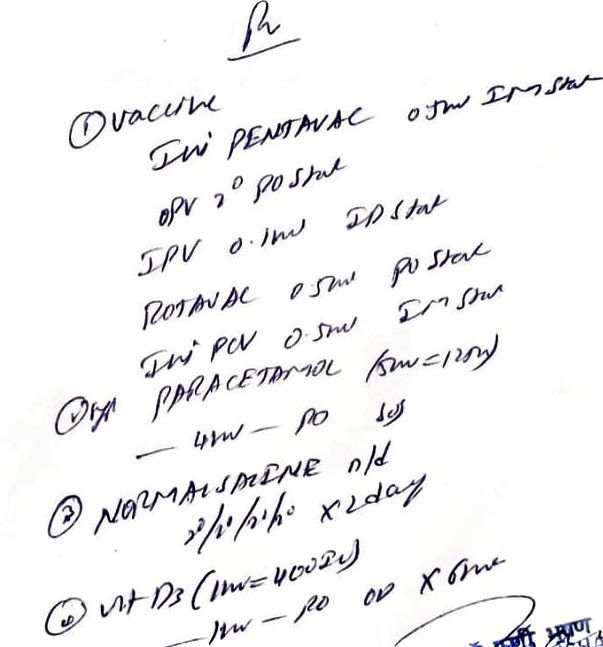 Rx
① vaccine
Inj PENTAVAC 0.5ml IM stat
OPV 2° PO stat
IPV 0.1ml ID stat
ROTAVAC 0.5ml PO stat
Inj PCV 0.5ml IM stat
② syp PARACETAMOL (5ml=125)
— 4ml — PO SOS
③ NORMALSALINE n/d
2°/2°/2°/2° x 2 day
④ vit D3 (1ml=400IU)
— 1ml — PO OD x 6